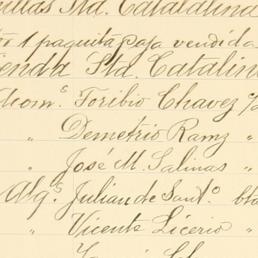 illas Sta. Catalina
or 1 paquita paja vendida
enda Sta. Catalin
dcom.s Toribio Chavez
" Demetrio Ramz "
" José M. Salinas "
Alq.s Julian de Sant.o bto
" Vicente Licerio "